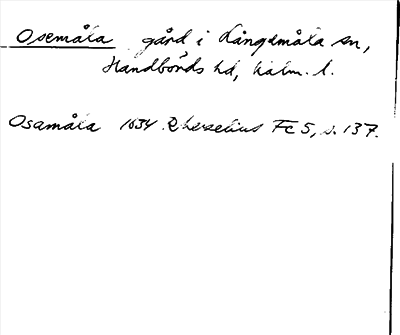 Osemåla gård i Långemåla sn,
Handbörds hd, Kalm. l.
Osamåla 1634 Rhezelius Fc 5, s. 137.